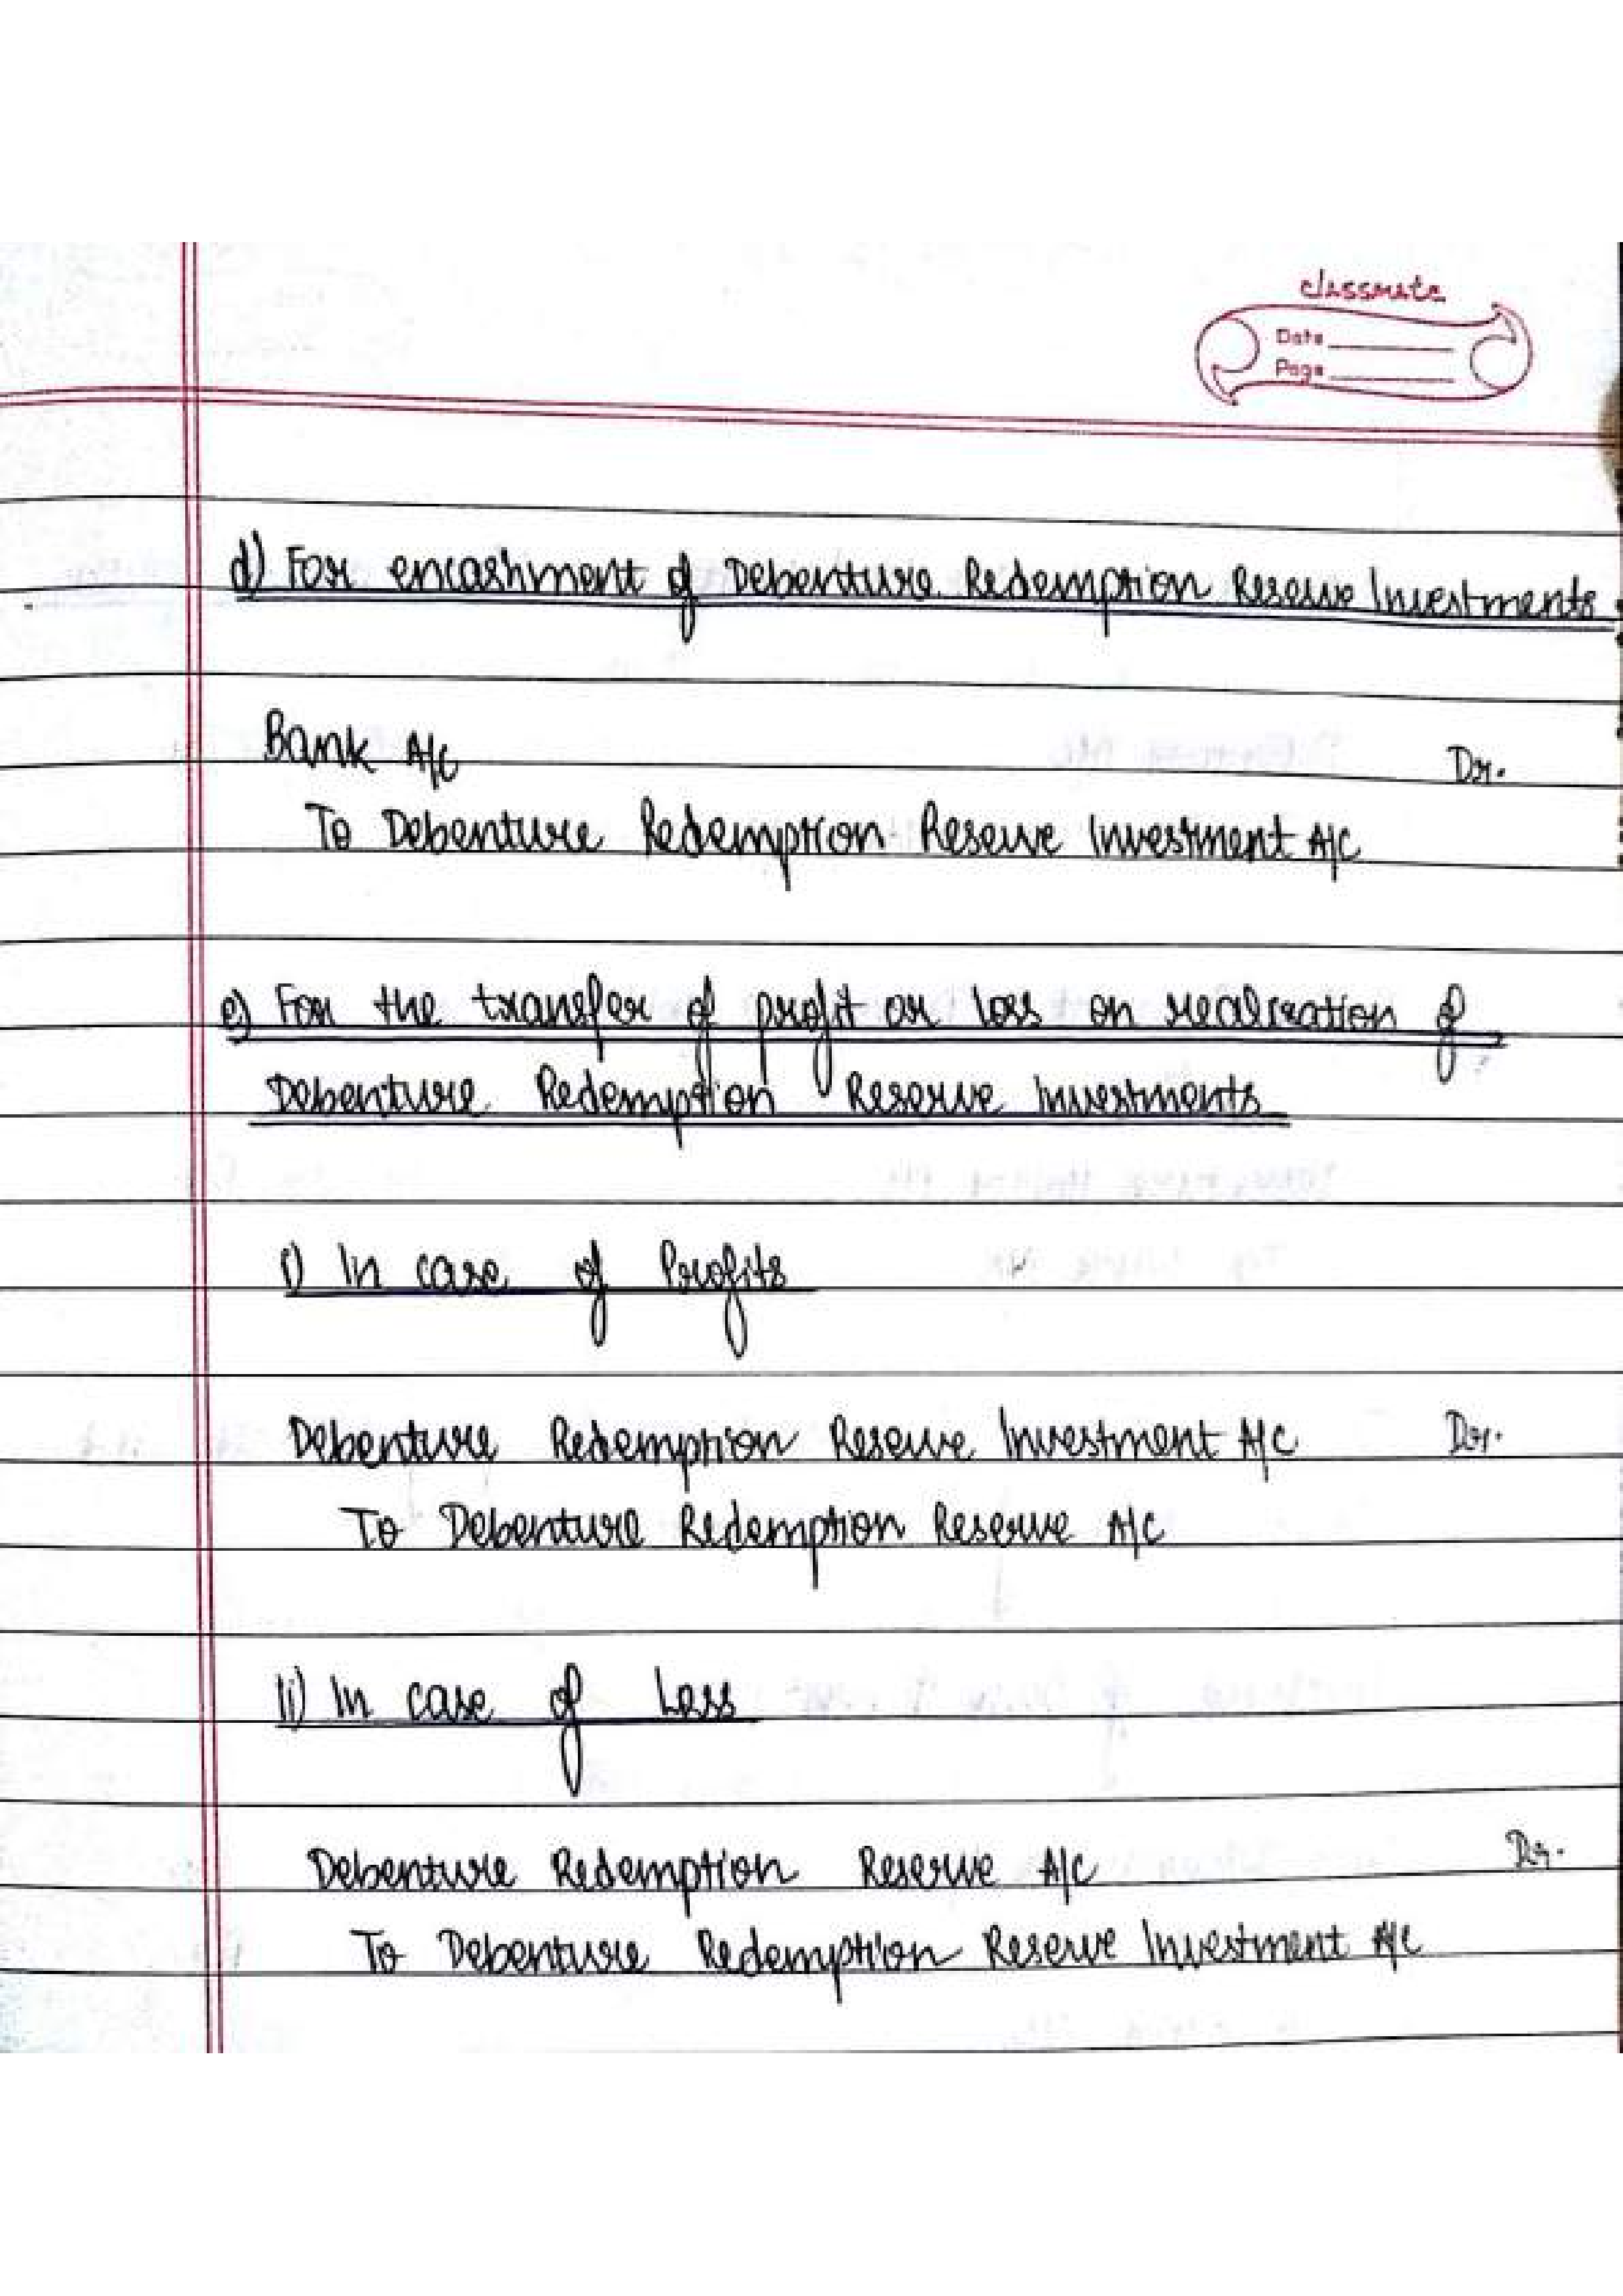 classmate
Date
Page
d) For encashment of Debenture Redemption Reserve Investments
Bank A/c Dr.
To Debenture Redemption Reserve Investment A/c
e) For the transfer of profit or loss on realization of
Debenture Redemption Reserve Investments
i) In case of Profits
Debenture Redemption Reserve Investment A/c Dr.
To Debenture Redemption Reserve A/c
ii) In case of Loss
Debenture Redemption Reserve A/c Dr.
To Debenture Redemption Reserve Investment A/c